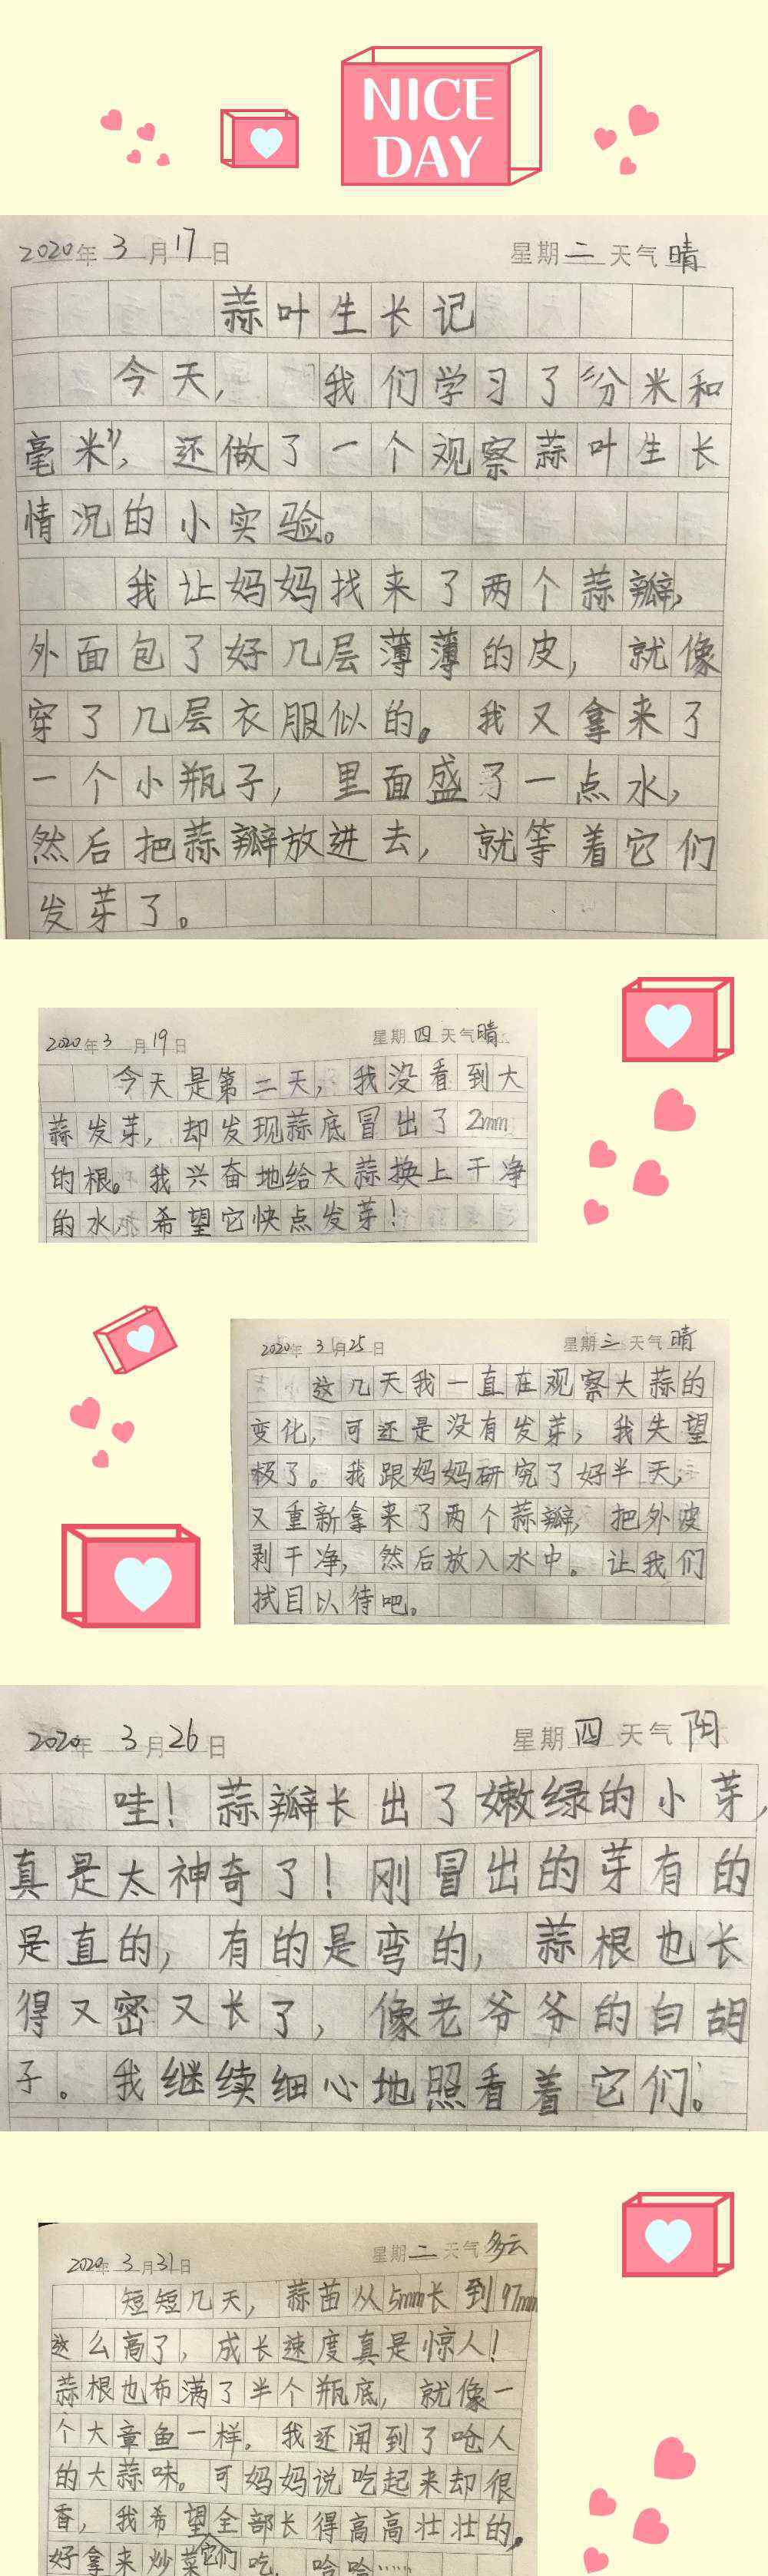 NICE
DAY
2020年 3月17日 星期二 天气晴
蒜叶生长记
今天，我们学习了“分米和
毫米”，还做了一个观察蒜叶生长
情况的小实验。
我让妈妈找来了两个蒜瓣，
外面包了好几层薄薄的皮，就像
穿了几层衣服似的。我又拿来了
一个小瓶子，里面盛了一点水，
然后把蒜瓣放进去，就等着它们
发芽了。
2020年3月19日 星期四 天气晴
今天是第二天，我没看到大
蒜发芽，却发现蒜底冒出了2mm
的根。我兴奋地给大蒜换上干净
的水，希望它快点发芽！
2020年 3月25日 星期三 天气晴
这几天我一直在观察大蒜的
变化，可还是没有发芽，我失望
极了。我跟妈妈研究了好半天，
又重新拿来了两个蒜瓣，把外皮
剥干净，然后放入水中。让我们
拭目以待吧。
2020年 3月26日 星期四 天气阴
哇！蒜瓣长出了嫩绿的小芽，
真是太神奇了！刚冒出的芽有的
是直的，有的是弯的，蒜根也长
得又密又长了，像老爷爷的白胡
子。我继续细心地照看着它们。
2020年 3月31日 星期二 天气多云
短短几天，蒜苗从5mm长到97mm
这么高了，成长速度真是惊人！
蒜根也布满了半个瓶底，就像一
个大章鱼一样。我还闻到了呛人
的大蒜味。可妈妈说吃起来却很
香，我希望全部长得高高壮壮的，
好拿来炒菜它们吃，哈哈……